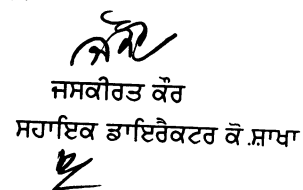 ਜਸਕੀਰਤ ਕੌਰ
ਸਹਾਇਕ ਡਾਇਰੈਕਟਰ ਕੋ.ਸ਼ਾਖਾ